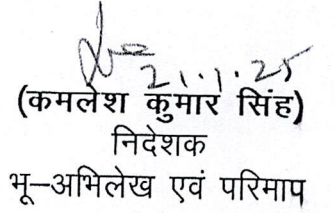 21.1.25
(कमलेश कुमार सिंह)
निदेशक
भू–अभिलेख एवं परिमाप